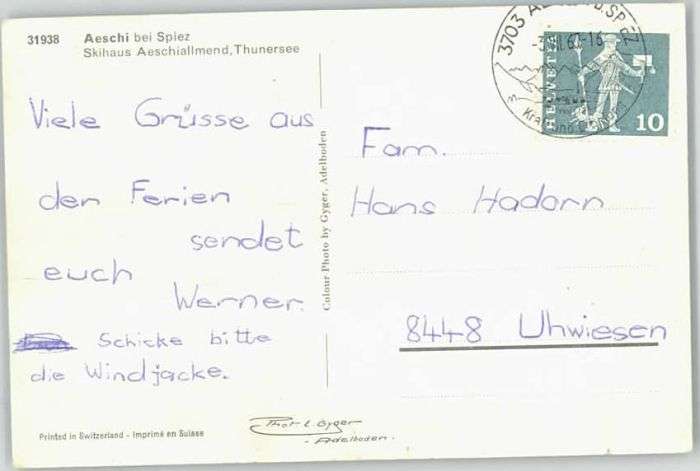 31938 Aeschi bei Spiez
Skihaus Aeschiallmend, Thunersee
Viele Grüsse aus
den Ferien
sendet
euch
Werner.
Schicke bitte
die Windjacke.
Printed in Switzerland - Imprimé en Suisse
Colour Photo by Gyger, Adelboden
Phot E. Gyger
- Adelboden -
3703
HELVETIA
10
Fam.
Hans Hadorn
8448 Uhwiesen